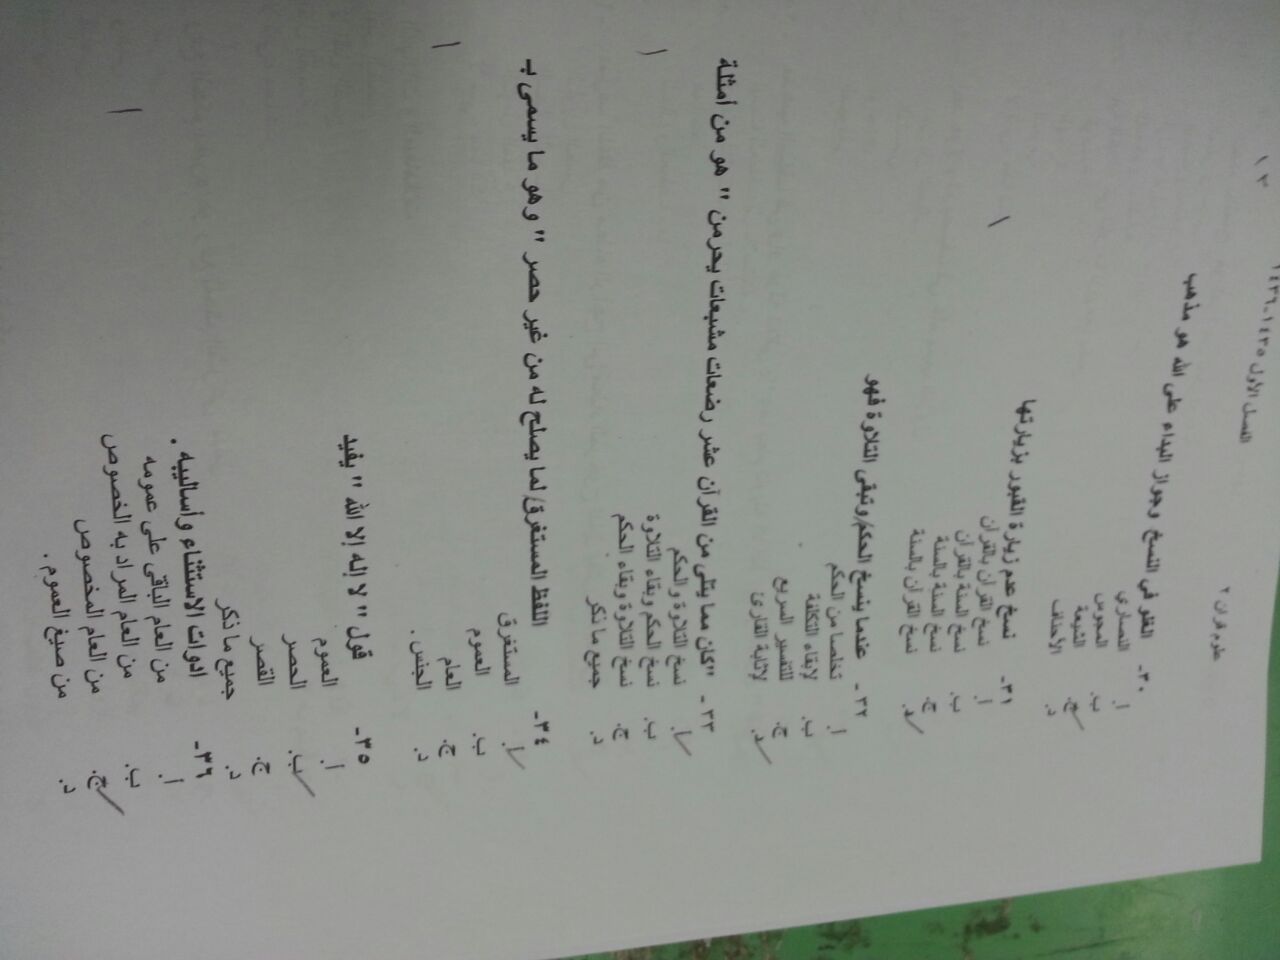 علوم قران ٢
الفصل الاول ١٤٣٥-١٤٣٦
٣٠- الغلو في النسخ وجواز البداء على الله هو مذهب
أ. النصارى
ب. المجوس
ج. الشيعة
د. الأحناف
٣١- نسخ عدم زيارة القبور بزيارتها
أ. نسخ القرآن بالقرآن
ب. نسخ السنة بالقرآن
ج. نسخ السنة بالسنة
د. نسخ القرآن بالسنة
٣٢- عندما ينسخ الحكم/وتبقى التلاوة فهو
أ. تخلصا من الحكم
ب. لإبقاء التكلفة
ج. للتفسير السريع
د. لإثابة القارئ
٣٣- "كان مما يتلى من القرآن عشر رضعات مشبعات يحرمن" هو من أمثلة
أ. نسخ التلاوة والحكم
ب. نسخ الحكم وبقاء التلاوة
ج. نسخ التلاوة وبقاء الحكم
د. جميع ما ذكر
٣٤- اللفظ المستغرق/لما يصلح له من غير حصر" وهو ما يسمى بـ
أ. المستغرق
ب. العموم
ج. العام
د. الجنس.
٣٥- قول "لا إله إلا الله" يفيد
أ. العموم
ب. الحصر
ج. القصر
د. جميع ما ذكر
٣٦- ادوات الاستثناء وأساليبه.
أ. من العام الباقي على عمومه
ب. من العام المراد به الخصوص
ج. من العام المخصوص
د. من صيغ العموم.